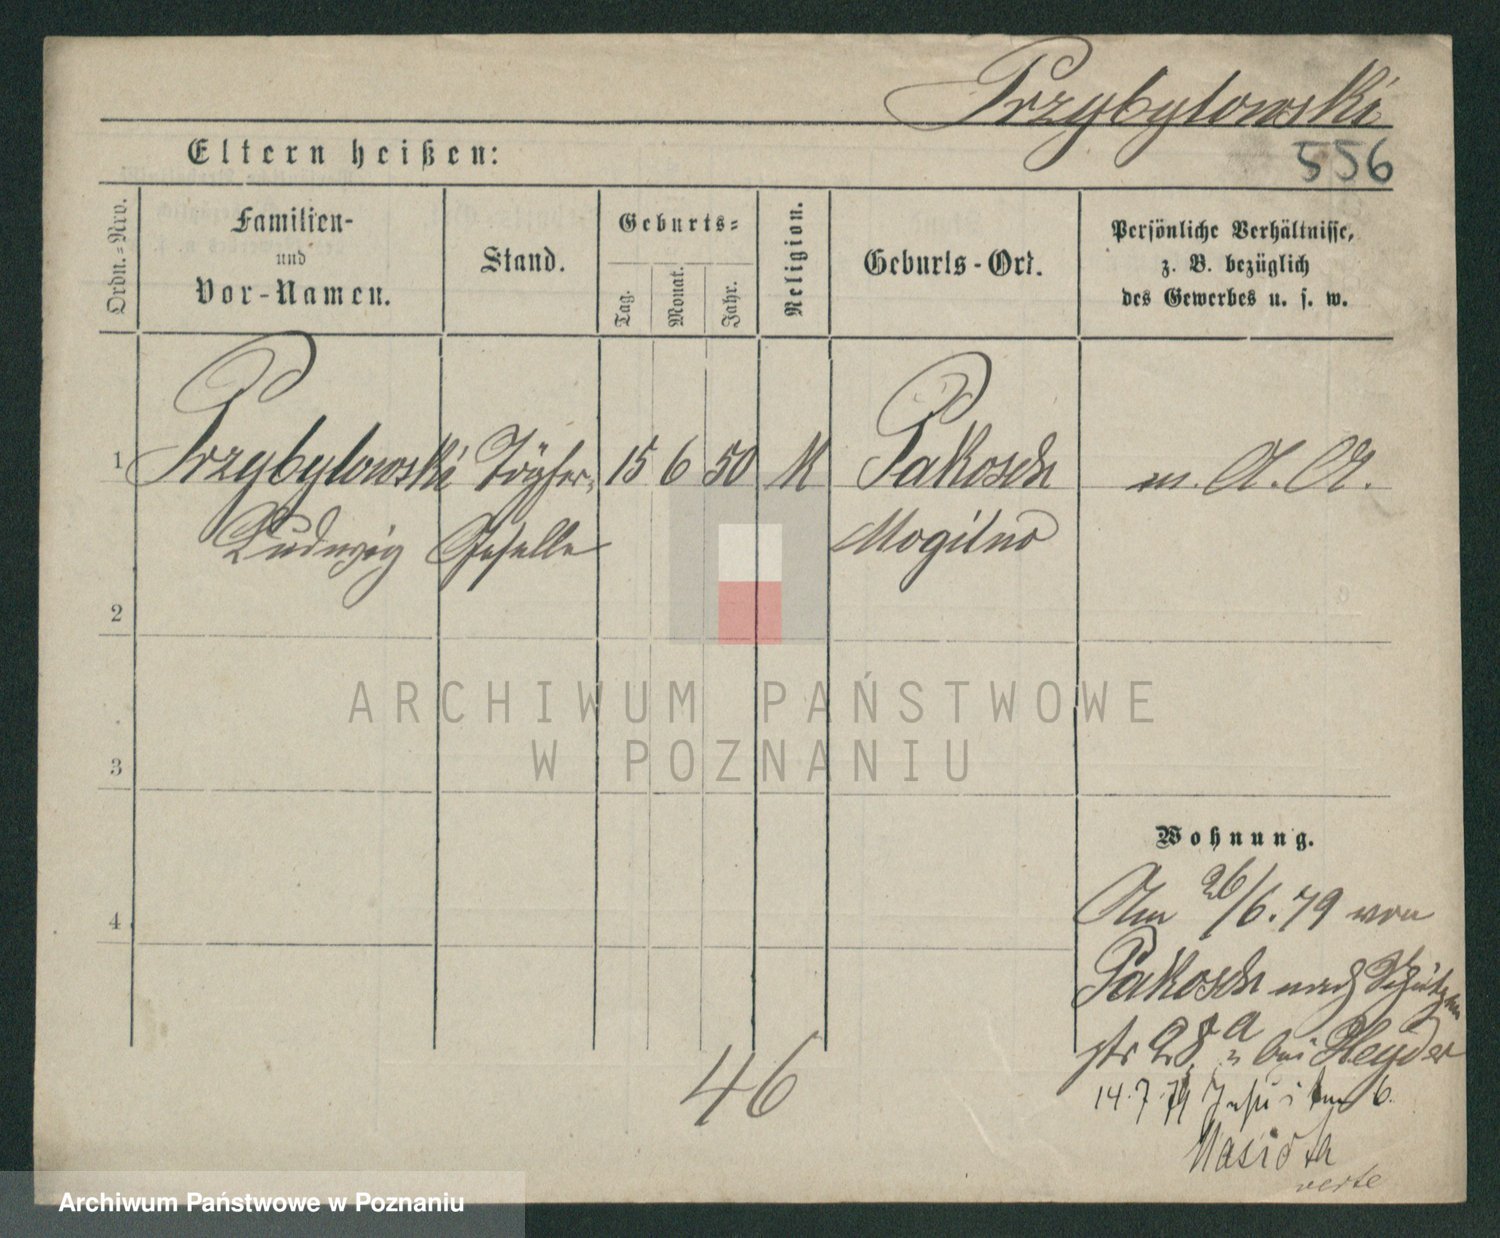 Przybylowski
556
Eltern heißen:
Ordn.-Nro.
Familien-
und
Vor-Namen.
Stand.
Geburts-
Tag.
Monat.
Jahr.
Religion.
Geburts-Ort.
Persönliche Verhältnisse,
z. B. bezüglich
des Gewerbes u. s. w.
1 Przybylowski Töpfer- 15 6 50 K Pakosch m. A. A.
Ludwig Geselle Mogilno
2
3
4
ARCHIWUM PAŃSTWOWE
W POZNANIU
Wohnung.
Am 26/6.79 von
Pakosch nach Schützen
str 28a bei Heyder
14.7.79 Jesuiten 6.
verte
46
Archiwum Państwowe w Poznaniu